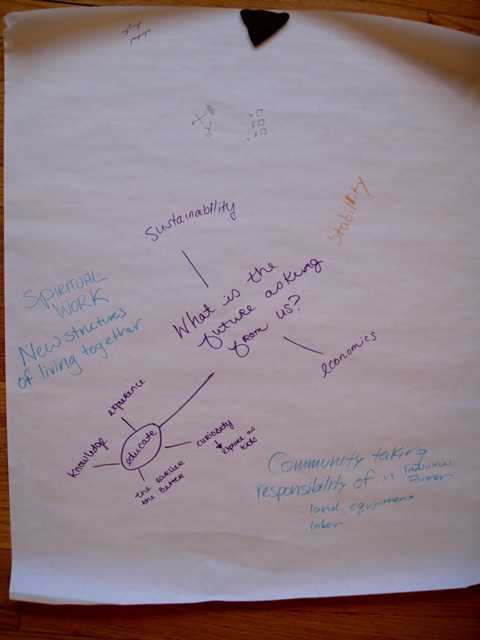 Sustainability
Stability
What is the
future asking
from us?
SPIRITUAL
WORK
New structures
of living together
economics
experience
educate
Knowledge
curiosity
expose as
kids
the earlier
the better
Community taking
responsibility of
land equipment
labor